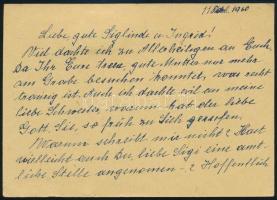 1940
Liebe gute Sieglinde u. Ingrid!
Viel dachte ich zu Allerheiligen an Euch,
da Ihr Eure treue, gute Mutter nur mehr
am Grabe besuchen könntet, was recht
traurig ist. Auch ich dachte viel an meine
liebe Schwester, warum hat der liebe
Gott Sie, so früh zu Sich gerufen.
Warum schreibt mir nicht? Hast
vielleicht auch Du, liebe Sigi eine amt-
liche Stelle angenommen -? Hoffentlich